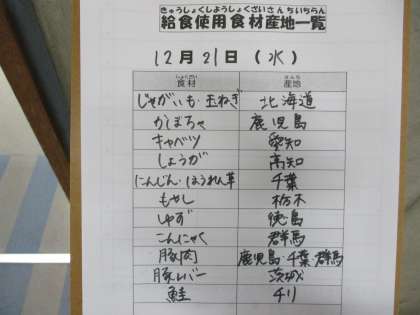 きゅうしょくしようしょくざいさんちいちらん
給食使用食材産地一覧
12月21日(水)
しょくざい さんち
食材 産地
じゃがいも・玉ねぎ 北海道
かぼちゃ 鹿児島
キャベツ 愛知
しょうが 高知
にんじん・ほうれん草 千葉
もやし 栃木
ゆず 徳島
こんにゃく 群馬
豚肉 鹿児島・千葉・群馬
豚レバー 茨城
鮭 チリ